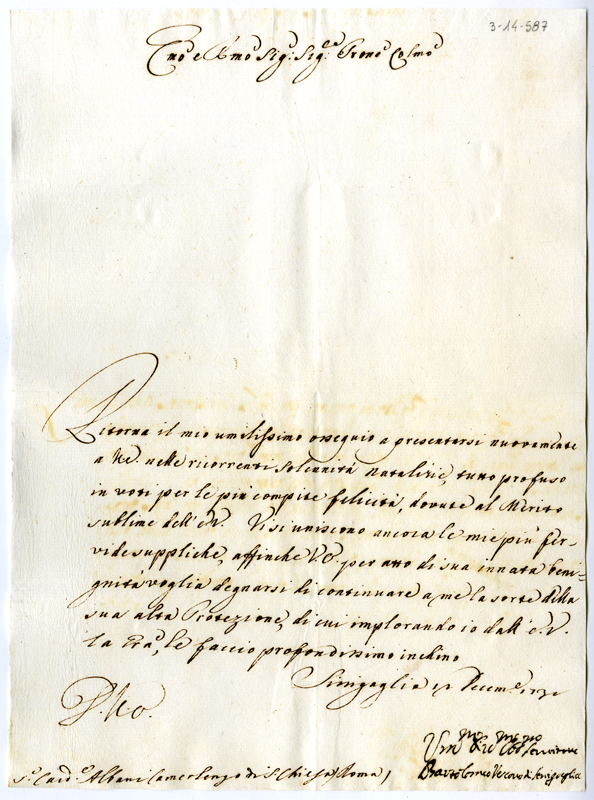 3-14-587
Emo e Rmo Sig.r Sig.r Prone Colmo
Ritorna il mio umilissimo ossequio a presentarsi nuovamente
a V.E. nelle ricorrenti solennità natalizie, tutto profuso
in voti per le più compite felicità, dovute al Merito
sublime dell'E.V. Vi si uniscono ancora le mie più fer-
vide suppliche, affinche V.E. per atto di sua innata beni-
gnità voglia degnarsi di continuare a me la sorte della
sua alta Protezione, di cui implorando io dall'E.V.
la Gra, le faccio profondissimo inchino
Sinigaglia Decem.e
D.V.E.
Umo Servitore
Sr Card.e Albani Camerlengo di S. Chiesa, Roma
Bartolomeo Vescovo di Senigaglia